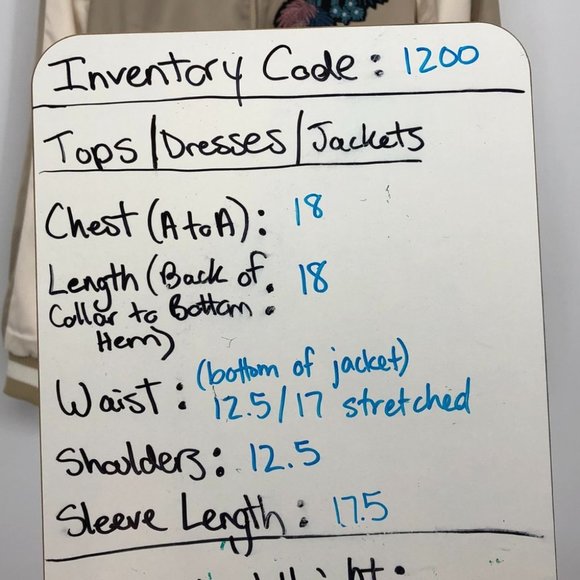 Inventory Code: 1200
Tops/Dresses/Jackets
Chest (A to A): 18
Length (Back of
Collar to Bottom
Hem): 18
Waist: (bottom of jacket)
12.5/17 stretched
Shoulders: 12.5
Sleeve Length: 17.5